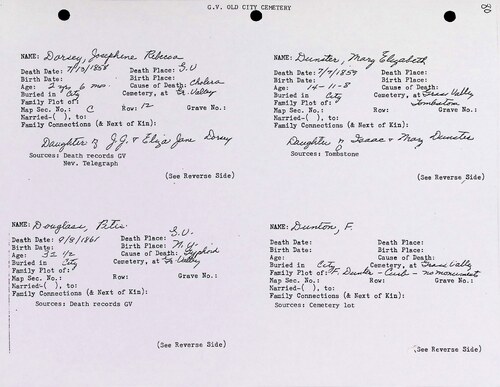 G.V. OLD CITY CEMETERY
NAME: Dorsey, Josephine Rebecca
Death Date: 7/13/1858 Death Place: G.V
Birth Date: Birth Place:
Age: 2 yrs 6 mo. Cause of Death: Cholera
Buried in City Cemetery, at Gr. Valley
Family Plot of:
Map Sec. No.: C Row: 12 Grave No.:
Married-( ), to:
Family Connections (& Next of Kin):
Daughter of J.J. & Eliza Jane Dorsey
Sources: Death records GV
Nev. Telegraph
(See Reverse Side)
NAME: Dunster, Mary Elizabeth
Death Date: 7/7/1859 Death Place:
Birth Date: Birth Place:
Age: 14-11-8 Cause of Death:
Buried in City Cemetery, at Grass Valley
Family Plot of: Tombstone
Map Sec. No.: Row: Grave No.:
Married-( ), to:
Family Connections (& Next of Kin):
Daughter of Isaac & Mary Dunster
Sources: Tombstone
(See Reverse Side)
NAME: Douglass, Peter
Death Date: 9/8/1861 Death Place: G.V.
Birth Date: Birth Place: N.Y.
Age: 32 1/2 Cause of Death: Typhoid
Buried in City Cemetery, at Gr. Valley
Family Plot of:
Map Sec. No.: Row: Grave No.:
Married-( ), to:
Family Connections (& Next of Kin):
Sources: Death records GV
(See Reverse Side)
NAME: Dunton, F.
Death Date: Death Place:
Birth Date: Birth Place:
Age: Cause of Death:
Buried in City Cemetery, at Grass Valley
Family Plot of: - Curb - no monument
Map Sec. No.: Row: Grave No.:
Married-( ), to:
Family Connections (& Next of Kin):
Sources: Cemetery lot
(See Reverse Side)